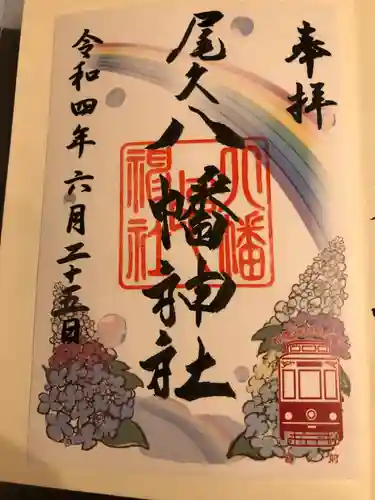 奉拝
尾久八幡神社
令和四年六月二十五日